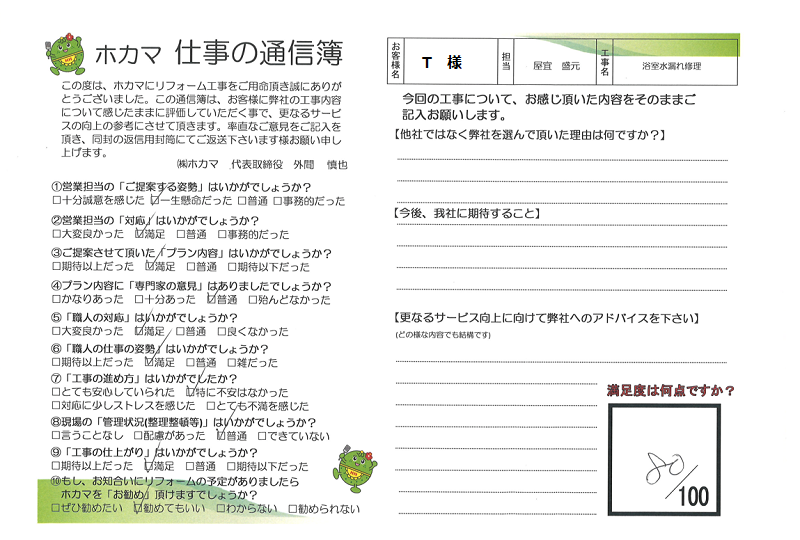 ホカマ 仕事の通信簿
この度は、ホカマにリフォーム工事をご用命頂き誠にありが
とうございました。この通信簿は、お客様に弊社の工事内容
について感じたままに評価していただく事で、更なるサービ
スの向上の参考にさせて頂きます。率直なご意見をご記入を
頂き、同封の返信用封筒にてご返送下さいます様お願い申し
上げます。
㈱ホカマ 代表取締役 外間 慎也
①営業担当の「ご提案する姿勢」はいかがでしょうか?
□十分誠意を感じた ☑一生懸命だった □普通 □事務的だった
②営業担当の「対応」はいかがでしょうか?
□大変良かった ☑満足 □普通 □事務的だった
③ご提案させて頂いた「プラン内容」はいかがでしょうか?
□期待以上だった ☑満足 □普通 □期待以下だった
④プラン内容に「専門家の意見」はありましたでしょうか?
□かなりあった □十分あった ☑普通 □殆んどなかった
⑤「職人の対応」はいかがでしょうか?
□大変良かった ☑満足 □普通 □良くなかった
⑥「職人の仕事の姿勢」はいかがでしょうか?
□期待以上だった ☑満足 □普通 □雑だった
⑦「工事の進め方」はいかがでしたか?
□とても安心していられた ☑特に不安はなかった
□対応に少しストレスを感じた □とても不満を感じた
⑧現場の「管理状況(整理整頓等)」はいかがでしょうか?
□言うことなし □配慮があった ☑普通 □できていない
⑨「工事の仕上がり」はいかがでしょうか?
□期待以上だった ☑満足 □普通 □期待以下だった
⑩もし、お知合いにリフォームの予定がありましたら
ホカマを「お勧め」頂けますでしょうか?
□ぜひ勧めたい ☑勧めてもいい □わからない □勧められない
お客様名 T 様 担当 屋宜 盛元 工事名 浴室水漏れ修理
今回の工事について、お感じ頂いた内容をそのままご
記入お願いします。
【他社ではなく弊社を選んで頂いた理由は何ですか?】
【今後、我社に期待すること】
【更なるサービス向上に向けて弊社へのアドバイスを下さい】
(どの様な内容でも結構です)
満足度は何点ですか?
80/100